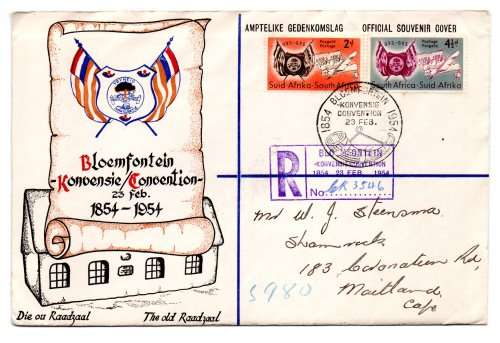 AMPTELIKE GEDENKOMSLAG OFFICIAL SOUVENIR COVER
OVS-OFS
2d
Posgeld
Postage
1854-1954
Suid-Afrika-South Africa
OVS-OFS
4½d
Postage
Posgeld
1854-1954
South Africa-Suid-Afrika
1854 BLOEMFONTEIN 1954
KONVENSIE
CONVENTION
23 FEB.
R
BLOEMFONTEIN
KONVENSIE-CONVENTION
1854 23 FEB. 1954
No. CR 3546
Bloemfontein
-Konvensie/Convention-
23 Feb.
1854-1954
Die ou Raadzaal
The old Raadzaal
W. J. Steensma
Shamrock
183 Coronation Rd
Maitland
Cape
5980